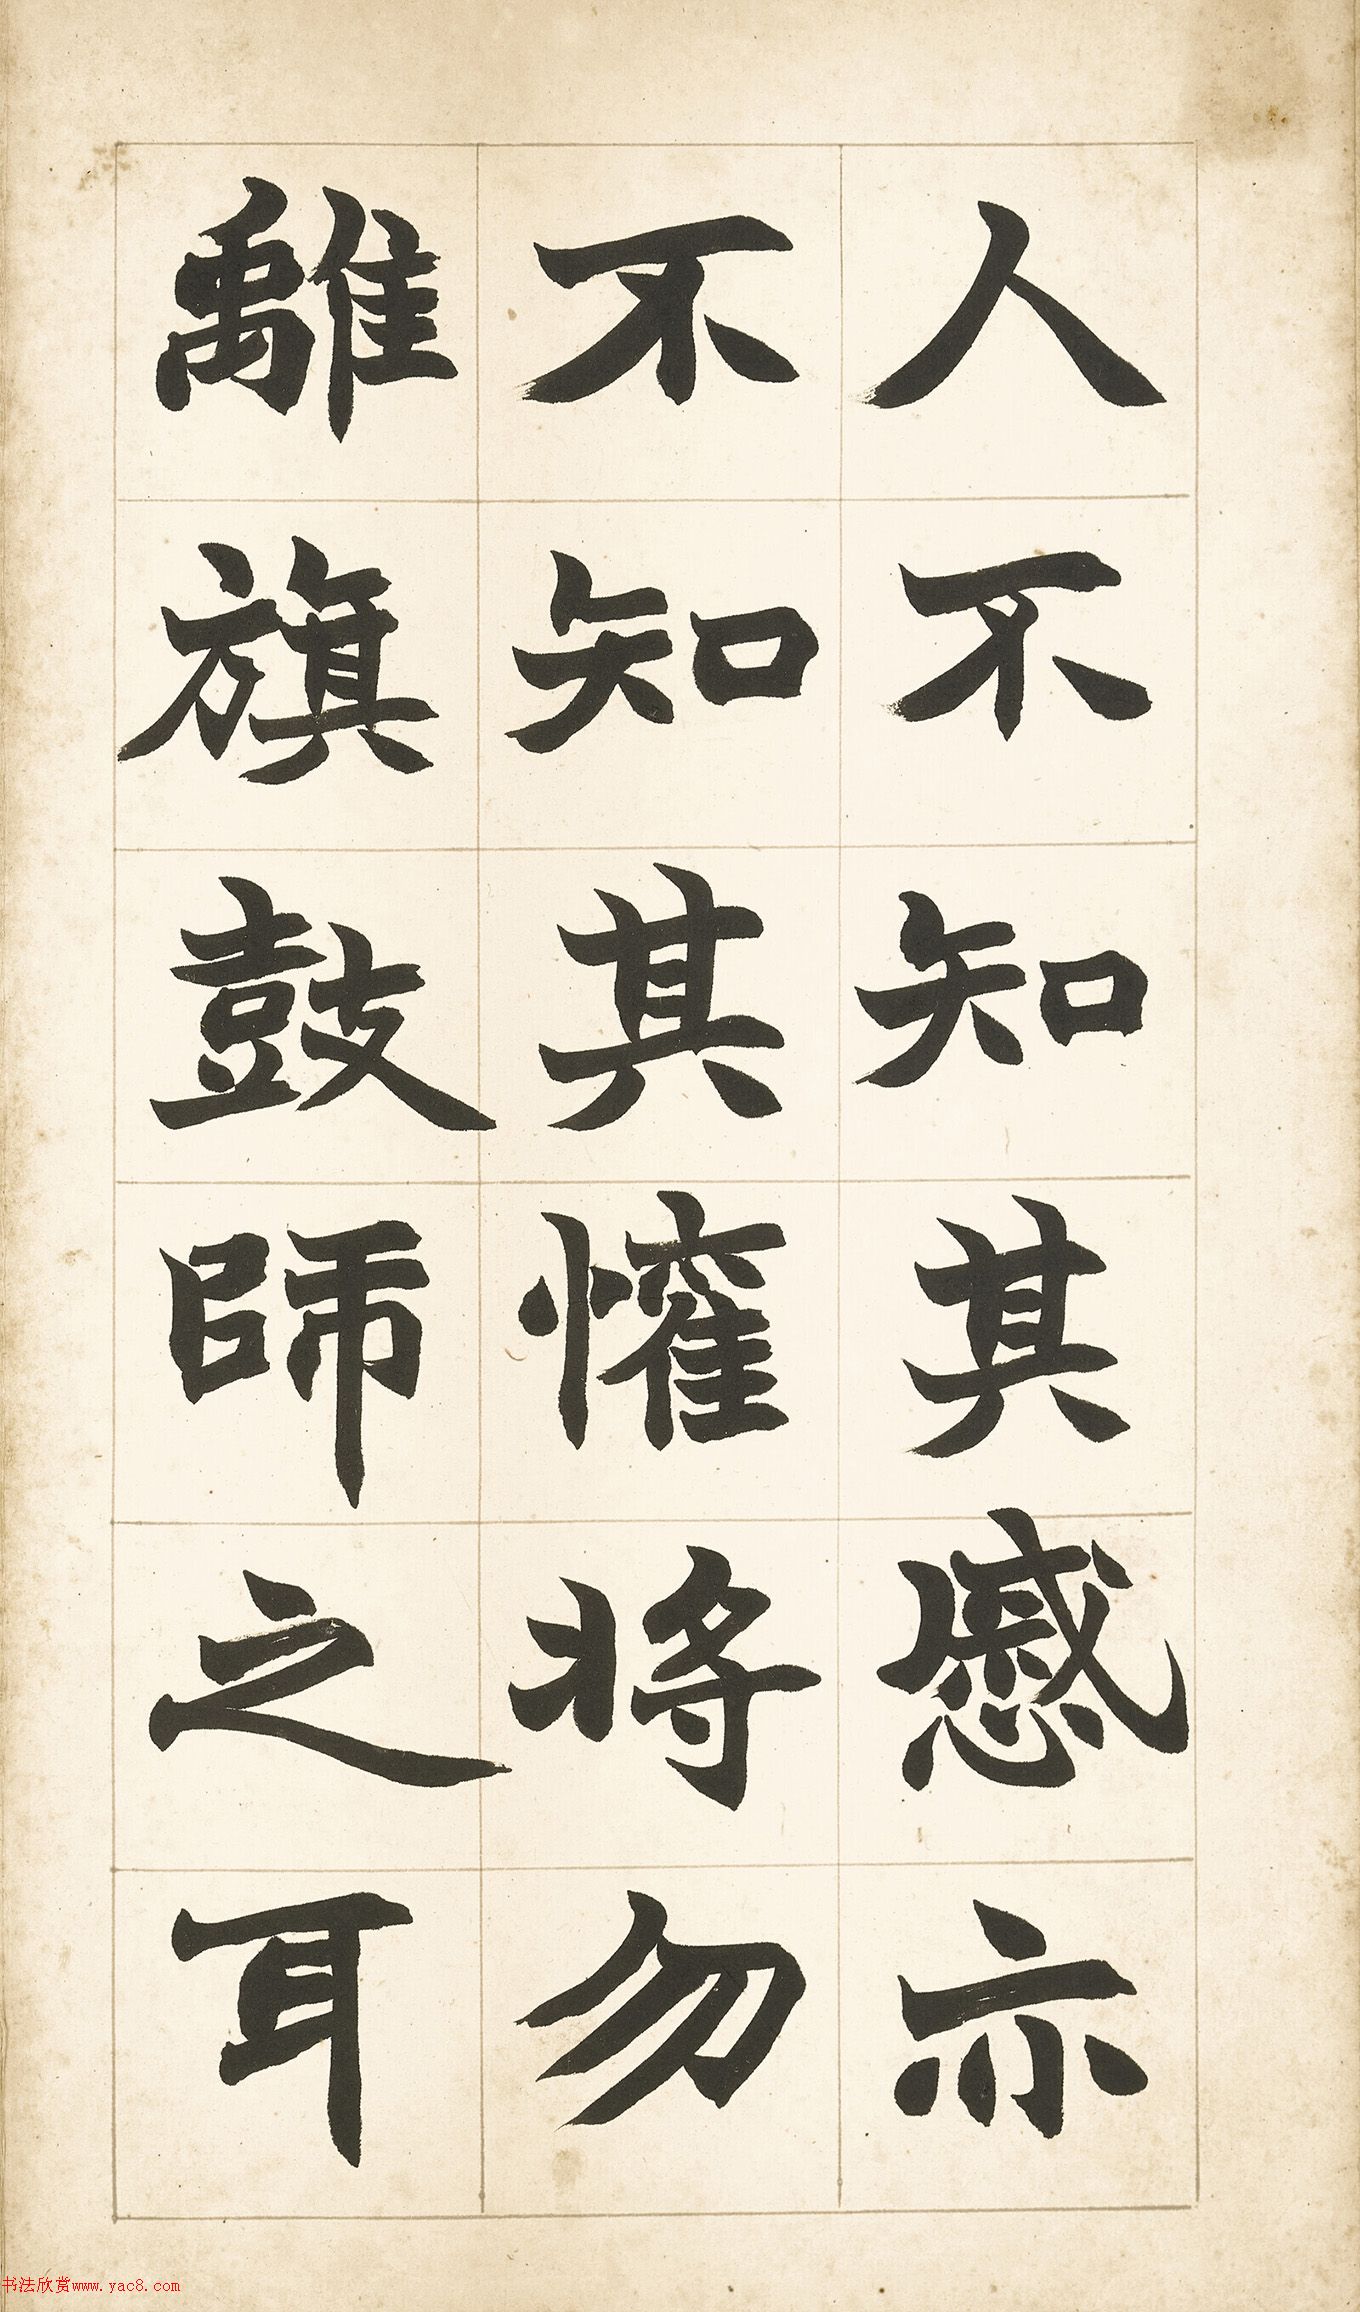 人不知其慼亦
不知其懽将勿
離旗鼓師之耳
书法欣赏www.yac8.com